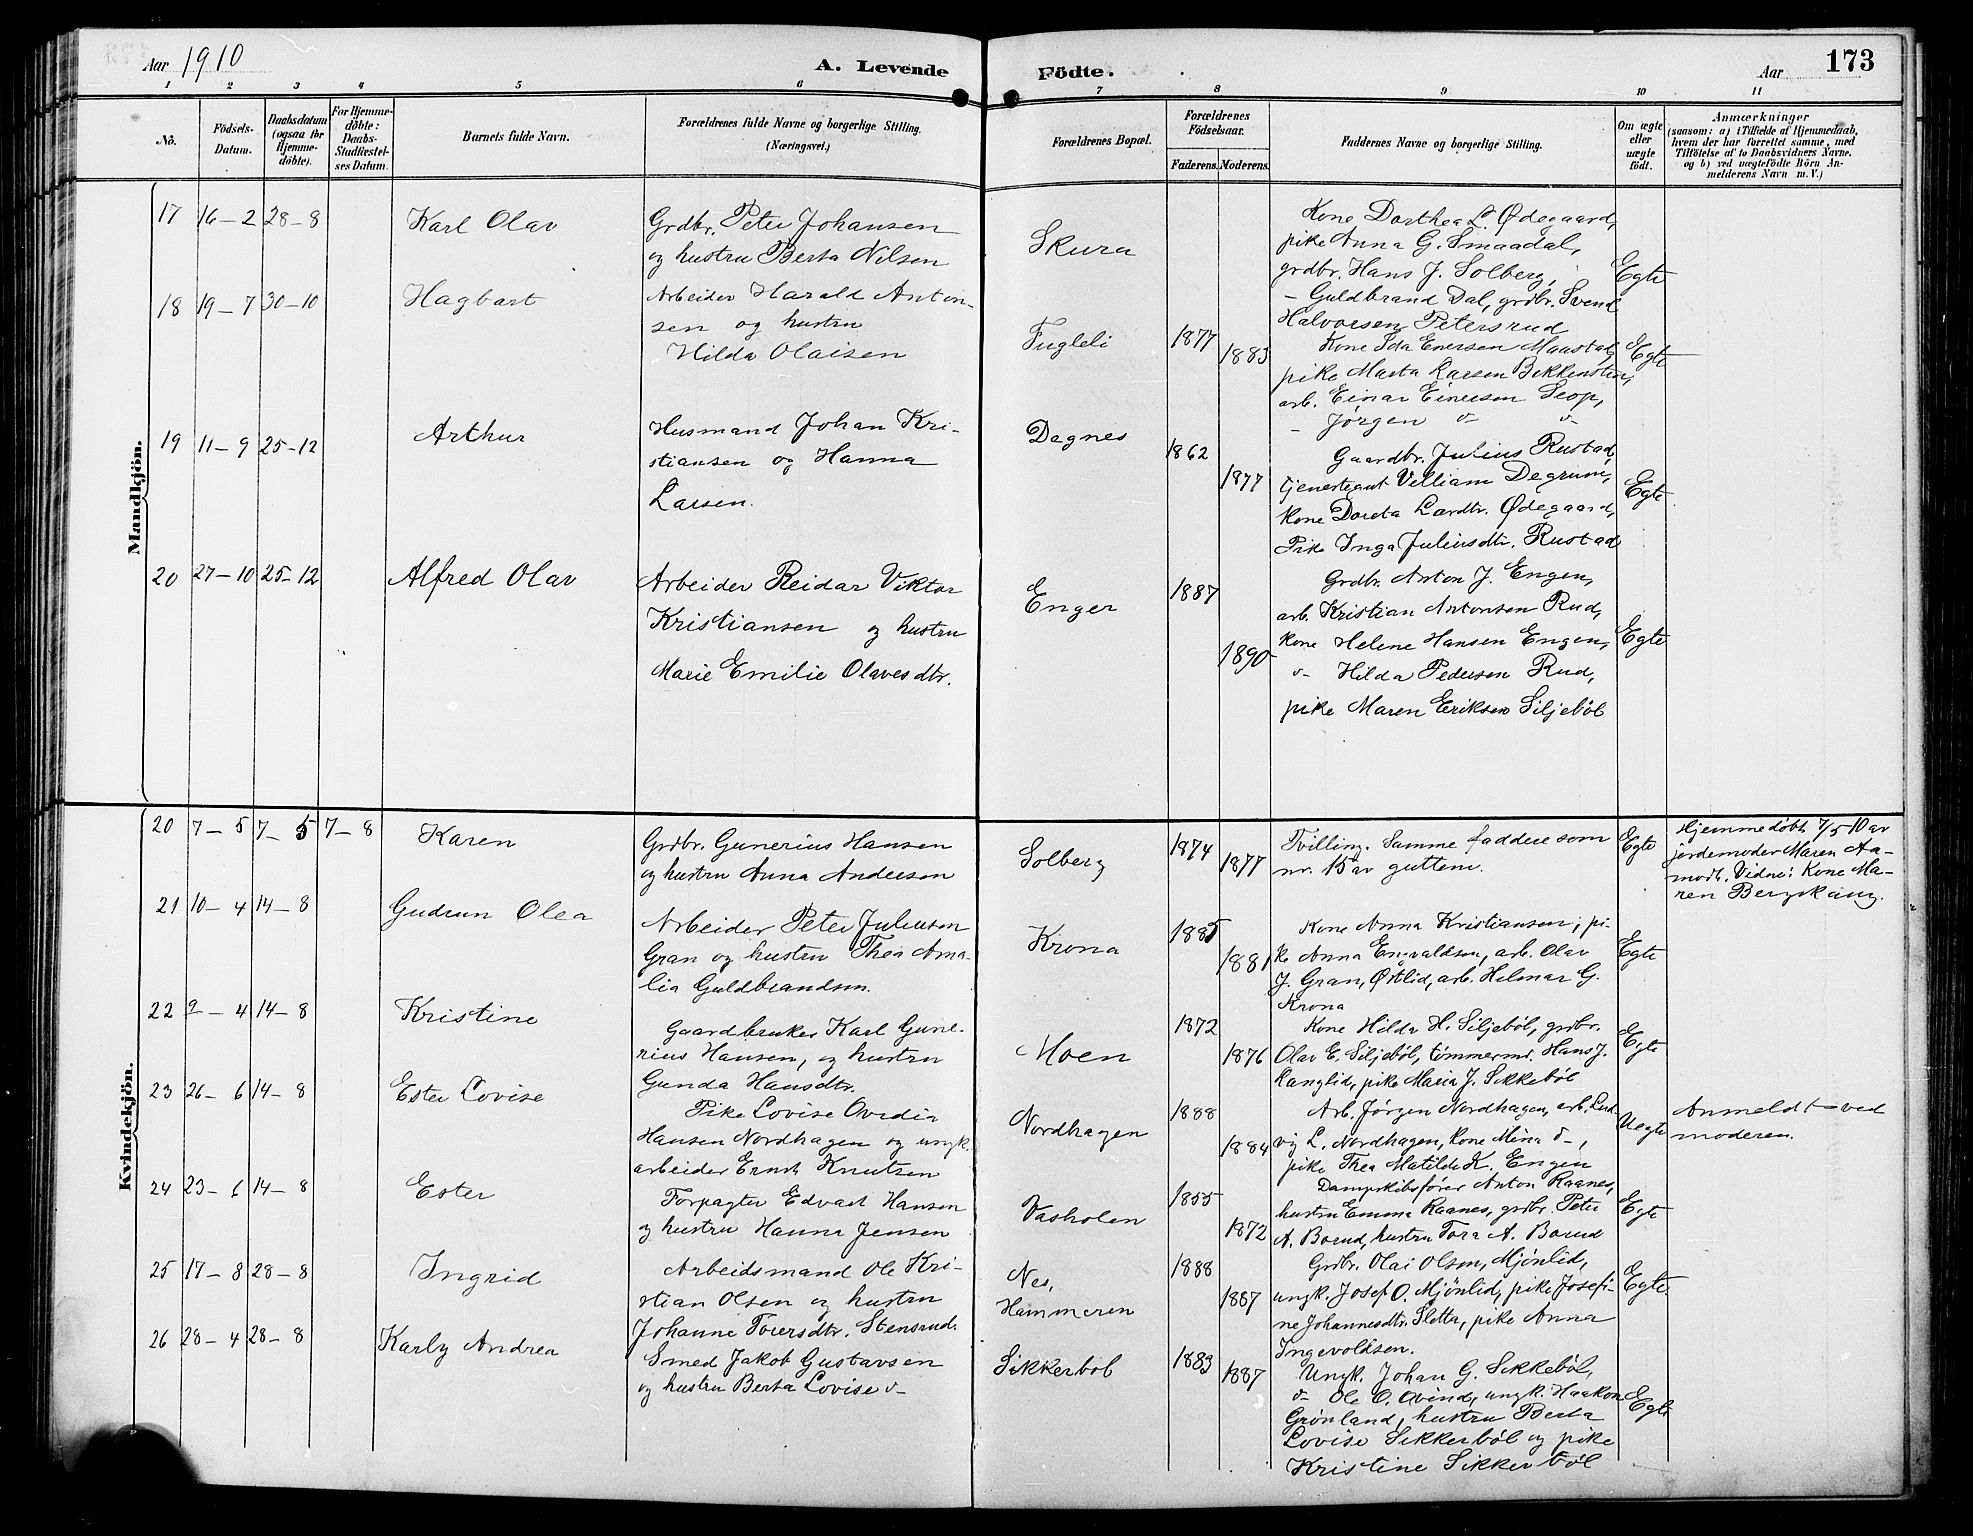 Aar 1910
A. Levende Fødte.
Aar 173
1 2 3 4 5 6 7 8 9 10 11
No.
Födsels-
Datum.
Daabsdatum
(ogsaa for
Hjemme-
døbte).
For Hjemme-
døbte:
Daabs-
Stadfæstel-
ses Datum.
Barnets fulde Navn.
Forældrenes fulde Navne og borgerlige Stilling.
(Næringsvei.)
Forældrenes Bopæl.
Forældrenes
Fødselsaar.
Faderens. Moderens.
Faddernes Navne og borgerlige Stilling.
Om ægte
eller
uægte
født.
Anmærkninger
(saasom: a) i Tilfælde af Hjemmedaab,
hvem der har forrettet samme, med
Tilføielse af to Daabsvidners Navne.
og b) ved uægtefødte Börn An-
melderens Navn m. V.)
Mandkjön.
17 16-2 28-8
Karl Olav
Grdbr. Peter Johansen
og hustru Berta Nilsen
Skura
Kone Dorthea L. Ødegaard,
pike Anna G. Smaadal,
grdbr. Hans J. Solberg,
- Guldbrand Dal, grdbr. Svend
Halvorsen Petersrud
Egte
18 19-7 30-10
Hagbart
Arbeider Harald Anton-
sen og hustru
Hilda Olaisen
Fugleli
1877
1883
Kone Ida Enersen Maustad,
pike Marta Larsen Bekkensten,
arb. Einar Einersen Seop,
- Jørgen d- d-
Egte
19 11-9 25-12
Arthur
Husmand Johan Kri-
stiansen og Hanna
Larsen.
Dagnes
1862
1877
Gaardbr. Julius Rustad,
tjenestegut Villiam Degrum,
kone Doreta Lardtr. Ødegaard,
Pike Inga Juliusdtr. Rustad
Egte
20 27-10 25-12
Alfred Olav
Arbeider Reidar Viktor
Kristiansen og hustru
Marie Emilie Olavesdtr.
Enger
1887
1890
Grdbr. Anton J. Engen,
arb. Kristian Antonsen Rud,
kone Helene Hansen Engen,
d- Hilda Pedersen Rud,
pike Maren Eriksen Siljebøl
Egte
Kvindekjön.
20 7-5 7-5 7-8
Karen
Grdbr. Gunerius Hansen
og hustru Anna Andersen
Solberg
1874
1877
Tvilling. Samme faddere som
nr. 15 av guttene.
Egte
Hjemmedøbt 7/5 10 av
jordemoder Maren Aa-
modt. Vidne: Kone Ma-
ren Bergskaug.
21 10-4 14-8
Gudrun Olea
Arbeider Peter Juliusen
Gran og hustru Thea Ama-
lia Guldbrandsen.
Krona
1885
1881
Kone Anna Kristiansen, pi-
ke Anna Engvaldsen, arb. Olav
J. Gran, Østlid, arb. Hilmar G.
Krona
Egte
22 9-4 14-8
Kristine
Gaardbruker Karl Gune-
rius Hansen, og hustru
Gunda Hansdtr.
Moen
1872
1876
Kone Hilda H. Siljebøl, grdbr.
Olav E. Siljebøl, tømmerm. Hans J.
Langlid, pike Maria J. Sikkebøl
Egte
23 26-6 14-8
Ester Lovise
Pike Lovise Ovedia
Hansen Nordhagen og ungk.
arbeider Ernst Knutsen
Nordhagen
1888
1884
Arb. Jørgen Nordhagen, arb. Lud-
vig L. Nordhagen, kone Mina d-,
pike Thea Matilde K. Engen
Uegte
Anmeldt ved
moderen.
24 23-6 14-8
Ester
Forpagter Edvart Hansen
og hustru Hanna Jensen
Vasholen
1855
1872
Dampskibsfører Anton Raanes,
hustru Emma Raanes, grdbr. Peter
A. Borud, hustru Tora A. Borud
Egte
25 17-8 28-8
Ingrid
Arbeidsmand Ole Kri-
stian Olsen og hustru
Johanne Toversdtr. Stensrud.
Nes,
Hammeren
1888
1887
Grdbr. Olai Olsen, Mjønlid,
ungk. Josef O. Mjønlid, pike Josefi-
ne Johannesdtr. Sletta, pike Anna
Ingevoldsen.
Egte
26 28-4 28-8
Karly Andrea
Smed Jakob Gustavsen
og hustru Berta Lovise d-
Sikkerbøl
1883
1887
Ungk. Johan G. Sikkebøl,
d- Ole O. Ovind, ungk. Haakon
Grønland, hustru Berta
Lovise Sikkerbøl og pike
Kristine Sikkerbøl
Egte